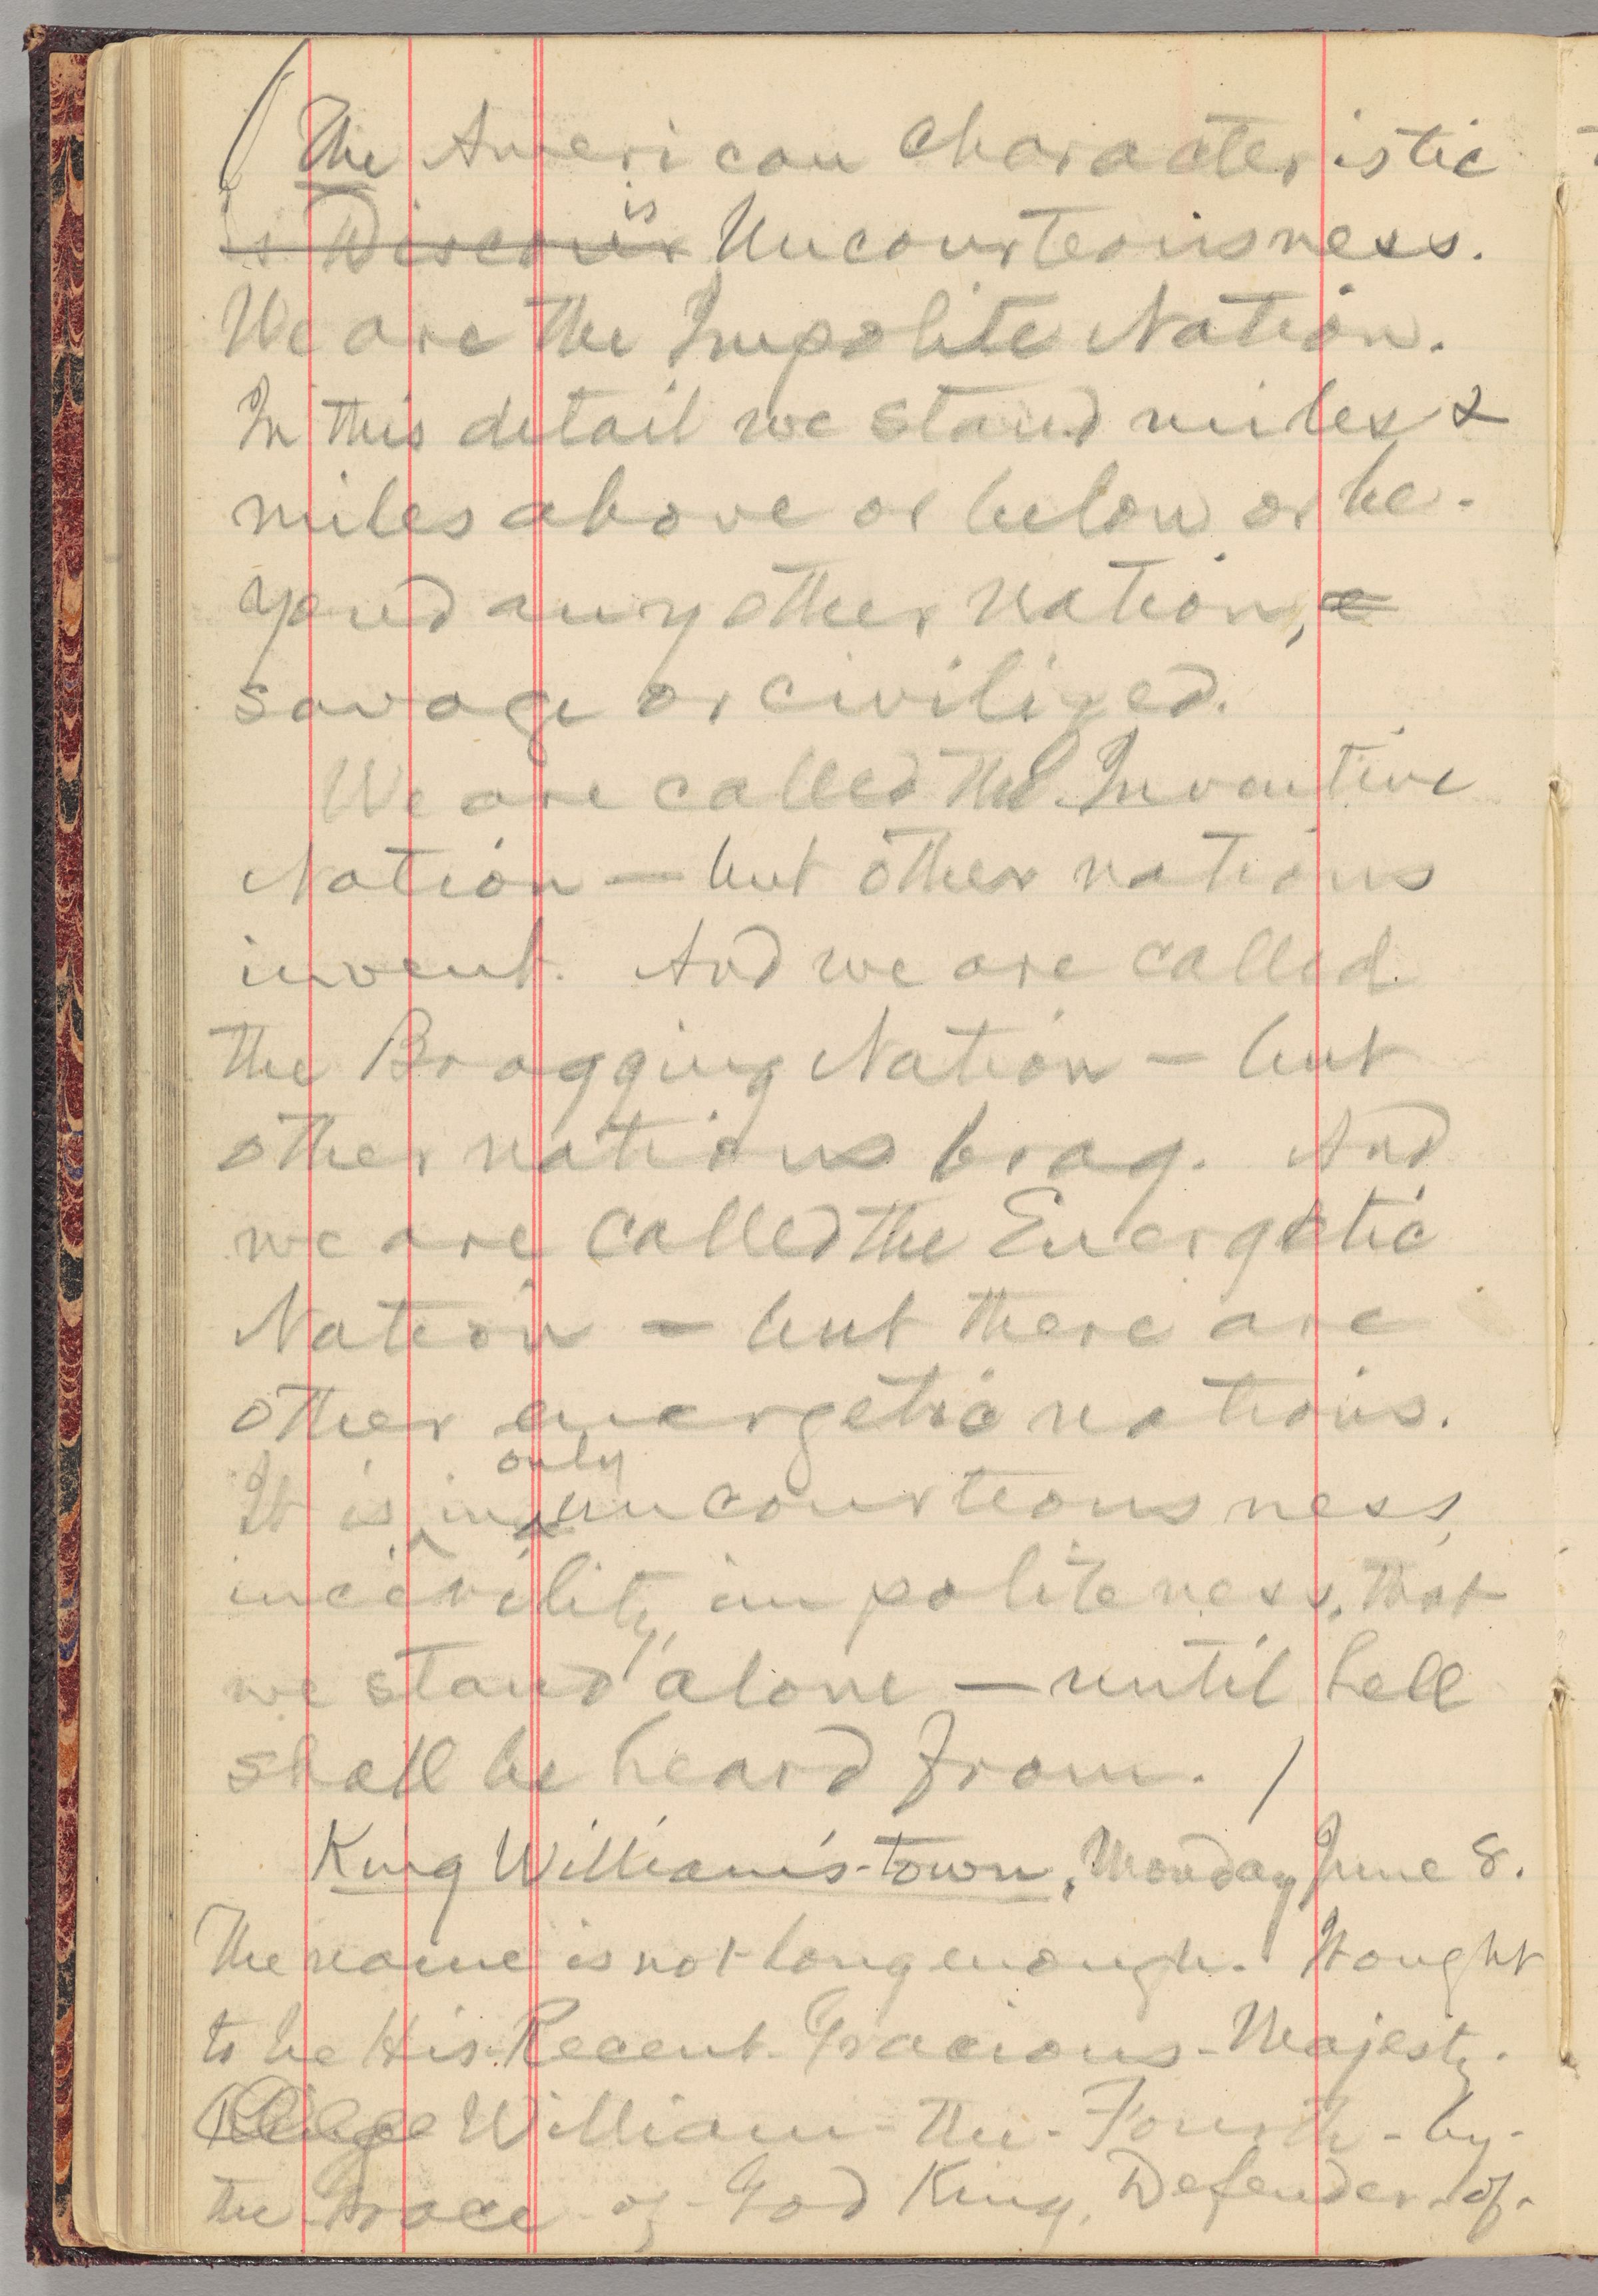 The American characteristic
is
is Discour Uncourteousness.
We are the Impolite Nation.
In this detail we stand miles &
miles above or below or be-
yond any other nation,
savage or civilized.
We are called the Inventive
Nation — but other nations
invent. And we are called
the Bragging Nation — but
other nations brag. And
we are called the Energetic
Nation — but there are
other energetic nations.
only
It is in uncourteousness,
incivility, impoliteness, that
we stand alone — until hell
shall be heard from.
King William's-town, Monday June 8.
The name is not long enough. It ought
to be His-Recent-Gracious-Majesty-
William-the-Fourth-by-
the-Grace-of-God King, Defender-of-